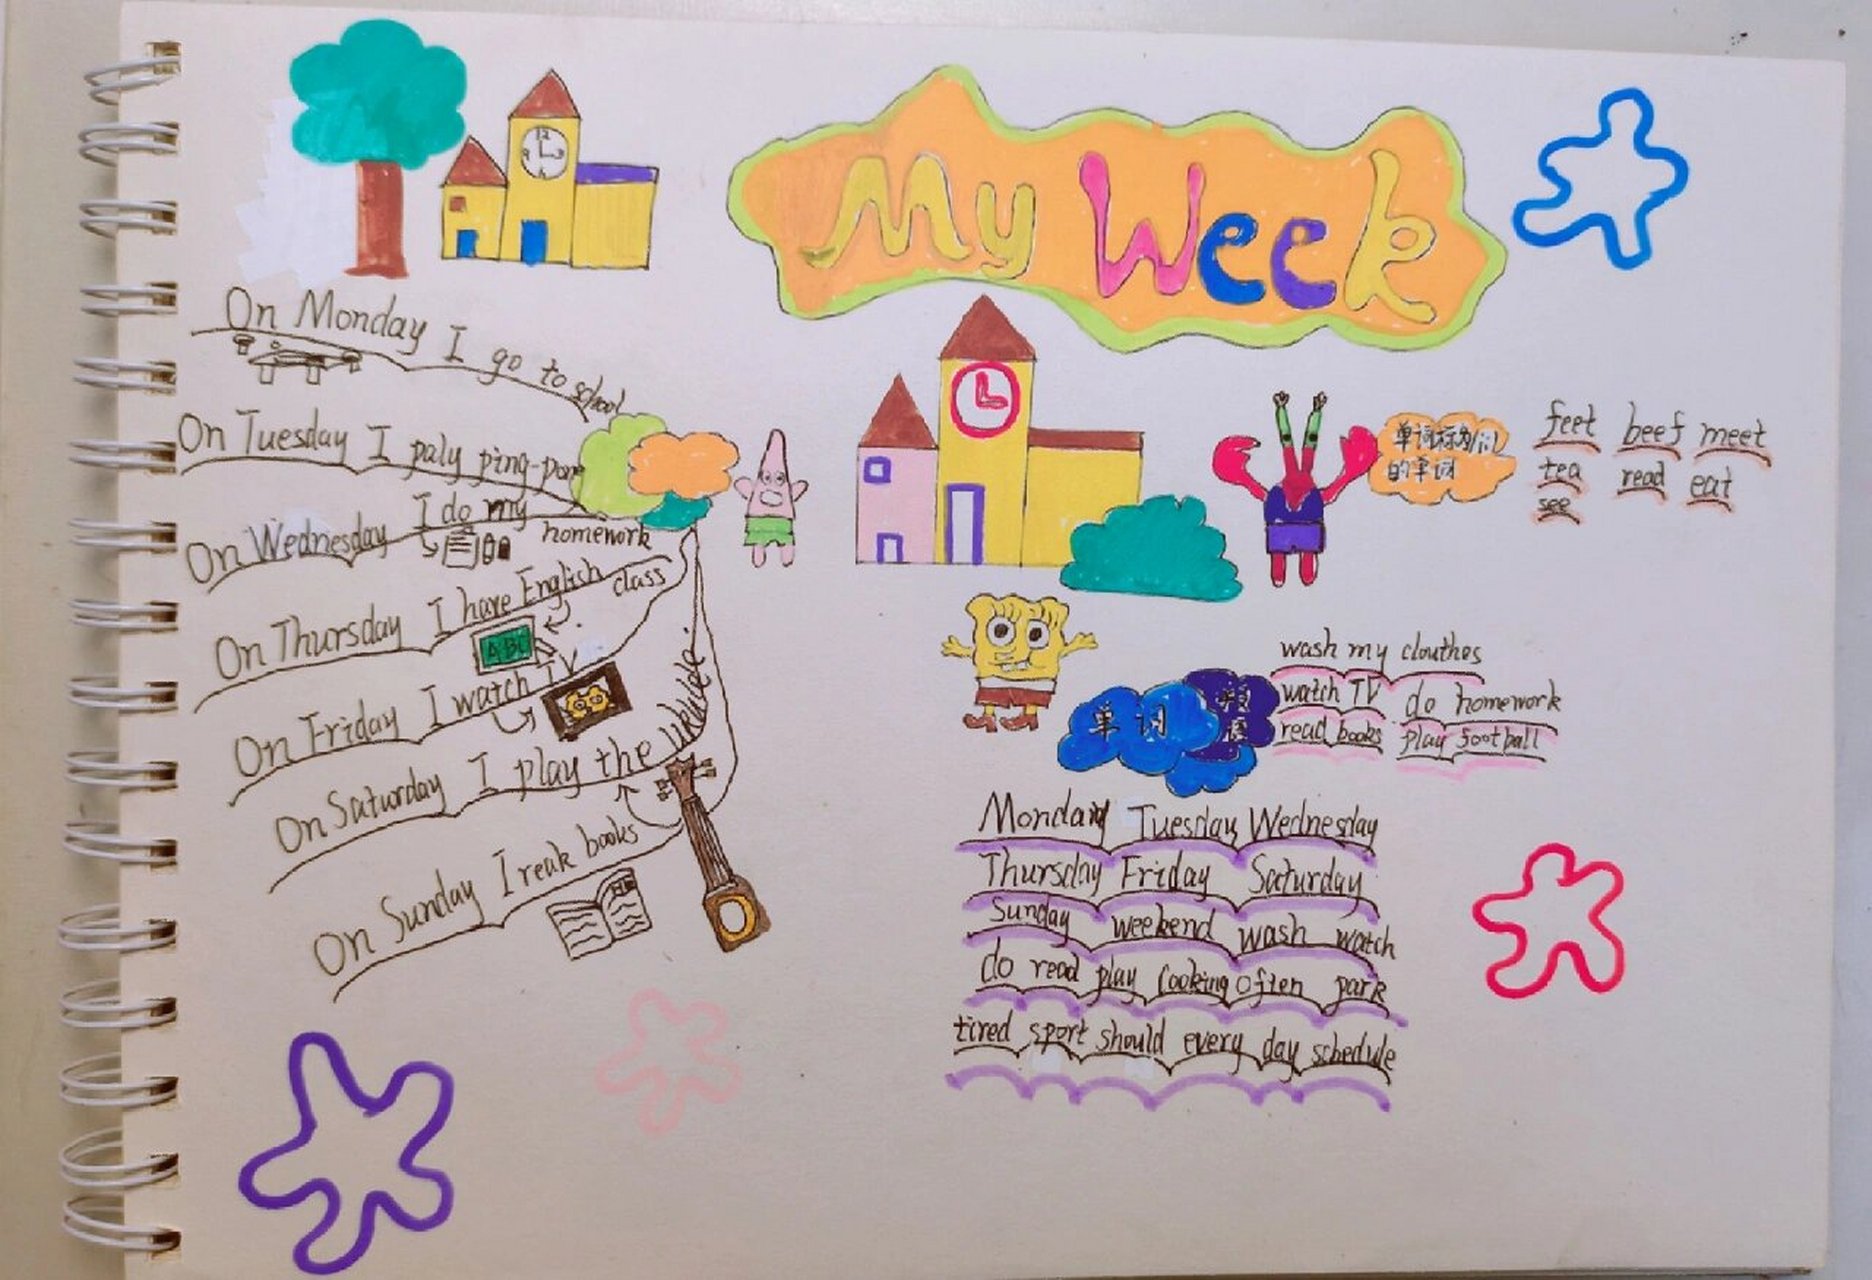 My Week
On Monday I go to school
On Tuesday I paly ping-pong
On Wednesday I do my homework
On Thursday I have English class
ABC
On Friday I watch TV
On Saturday I play the ukulele.
On Sunday I reak books
单词
的单词
feet beef meet
tea read eat
see
单词
短语
wash my clouthes
watch TV do homework
read books play football
Monday Tuesday Wednesday
Thursday Friday Saturday
Sunday weekend wash watch
do read play cooking often park
tired sport should every day schedule